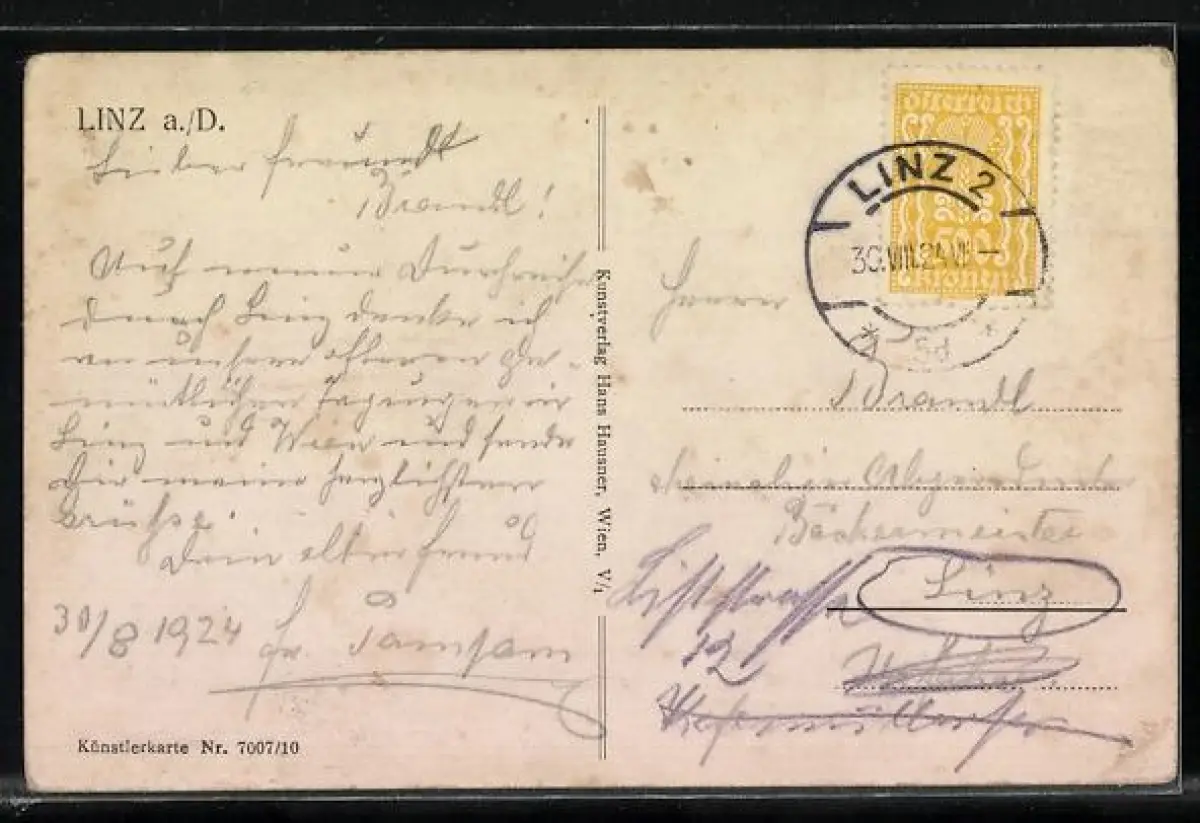 LINZ a./D.
Lieber Freund
Brandl!
Auf meiner Durchreise
durch Linz denke ich
an unsere öfteren ge-
mütlichen Tagungen in
Linz und Wien und sende
Dir meine herzlichsten
Grüße.
Dein alter Freund
30/8 1924 Fr.
Künstlerkarte Nr. 7007/10
Kunstverlag Hans Hausner, Wien, V/1
Österreich
500
Kronen
LINZ 2
30.VIII.24
Herrn
Brandl
Abgeordneter
Bäckermeister
Linz
12